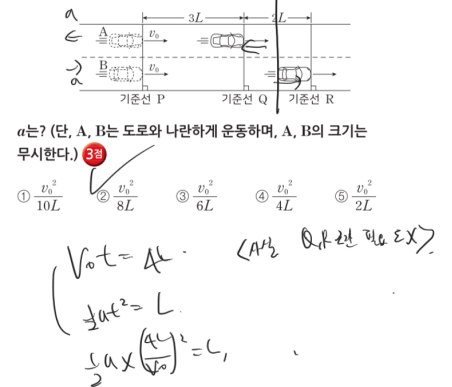 a 3L 2L
← A v₀
→ B v₀
a
기준선 P 기준선 Q 기준선 R
a는? (단, A, B는 도로와 나란하게 운동하며, A, B의 크기는
무시한다.) 3점
① v₀²/10L ② v₀²/8L ③ v₀²/6L ④ v₀²/4L ⑤ v₀²/2L
V₀t = 4L. <A는 Q, R 구간 필요 X>
½at² = L
½a×(4L/V₀)² = L,